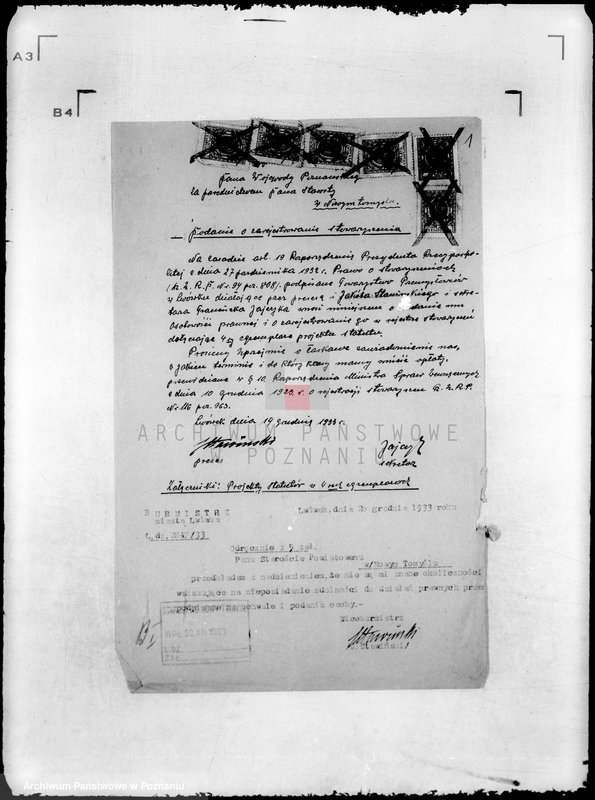 A3
B4
1
Pana Wojewody Poznańskiego
za pośrednictwem Pana Starosty
w Nowym Tomyślu.
Podanie o zarejestrowanie stowarzyszenia
Na zasadzie art. 19 Rozporządzenia Prezydenta Rzeczypospo-
litej z dnia 27 października 1932 r. Prawo o stowarzyszeniach
(Dz. U. R. P. Nr. 94 poz. 808) podpisane Towarzystwo Przemysłowców
w Lwówku działające przez prezesa i sekre-
tarza wnosi niniejszem o nadanie mu
osobowości prawnej i o zarejestrowanie go w rejestrze stowarzyszeń
dołączając 4 egzemplarze projektu statutu.
Prosimy uprzejmie o łaskawe zawiadomienie nas,
w jakim terminie i do której kasy mamy uiścić opłaty,
przewidziane w § 10. Rozporządzenia Ministra Spraw Wewnętrznych
z dnia 10 grudnia 1932 r. o rejestracji stowarzyszeń Dz. U. R. P.
Nr. 116 poz. 963.
Lwówek dnia 19 grudnia 1933 r.
prezes
sekretarz
Załączniki: Projekty statutów w 4 egzemplarzach
ARCHIWUM PAŃSTWOWE
W POZNANIU
BURMISTRZ
miasta Lwówka
Lwówek, dnia 20 grudnia 1933 roku
L. dz. /33
Odręcznie z 5 zał.
Panu Staroście Powiatowemu
w/Nowym Tomyślu
przedkładam z nadmienieniem, że nie są mi znane okoliczności
wskazujące na nieposiadanie zdolności do działań prawnych przez
podpisane na uchwale i podaniu osoby.-
Wiceburmistrz
WPŁ. 22 XII 1933
Archiwum Państwowe w Poznaniu